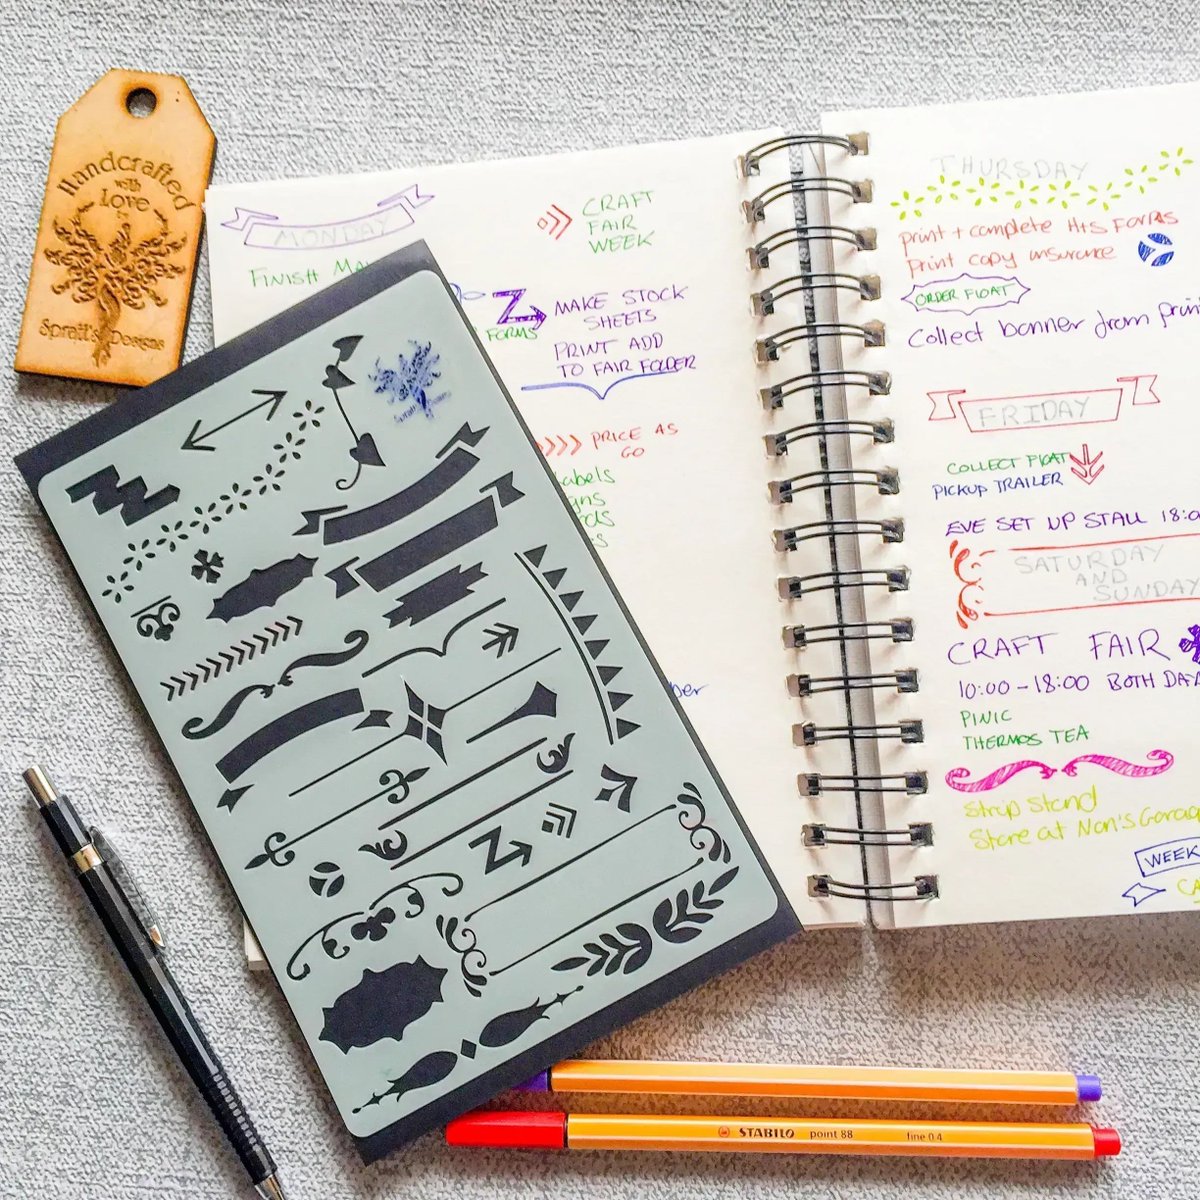 Handcrafted
with
Love
by
Spratt's Designs
MONDAY
FINISH
CRAFT
FAIR
WEEK
FORMS
MAKE STOCK
SHEETS
PRINT ADD
TO FAIR FOLDER
PRICE AS
GO
THURSDAY
print + complete H+S FORMS
Print copy insurance
ORDER FLOAT
Collect banner from
FRIDAY
COLLECT FLOAT
PICKUP TRAILER
EVE SET UP STALL
SATURDAY
AND
SUNDAY
CRAFT FAIR
10:00 - 18:00 BOTH DAYS
PINIC
THERMOS TEA
Strip Stand
Store at Nan's
WEEK
STABILO point 88 fine 0.4